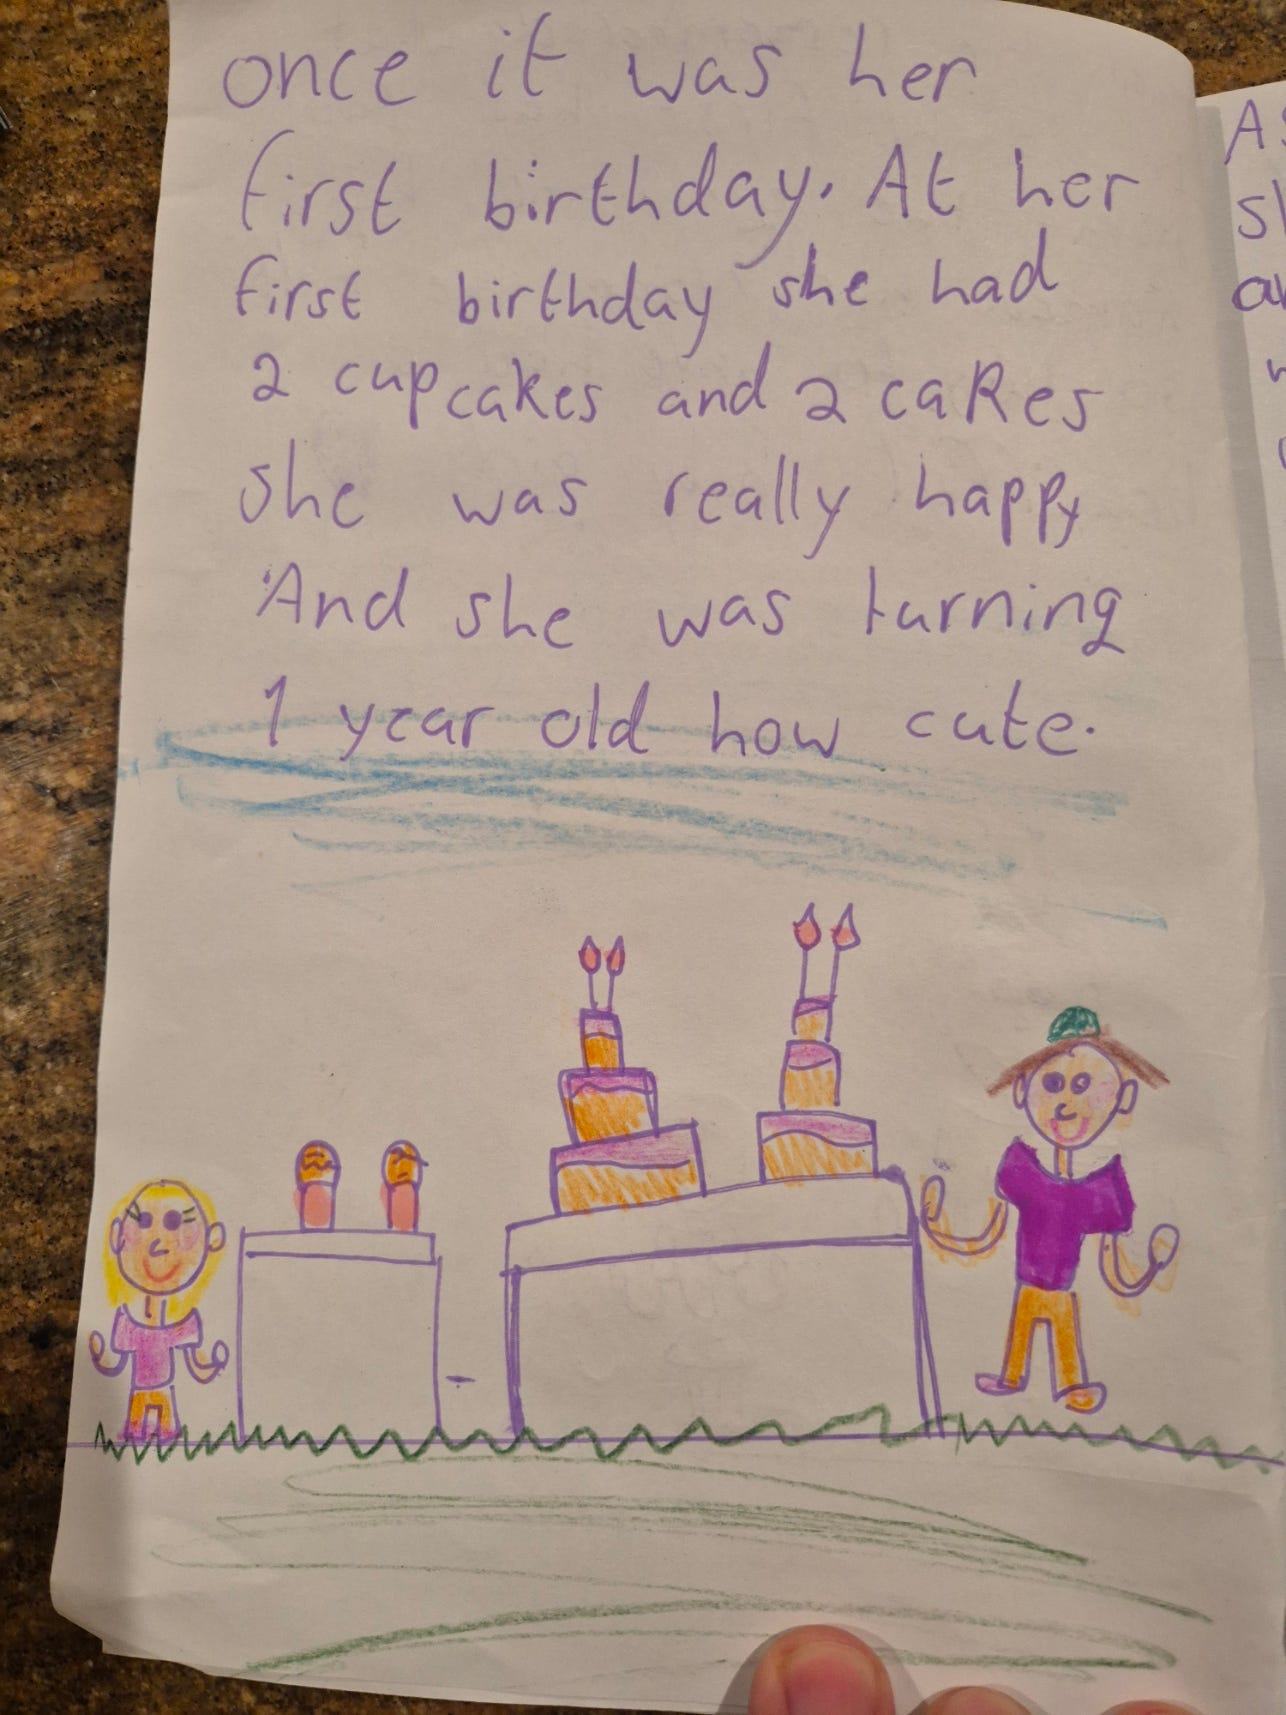 once it was her
first birthday. At her
first birthday she had
2 cupcakes and 2 cakes
she was really happy
And she was turning
1 year old how cute.